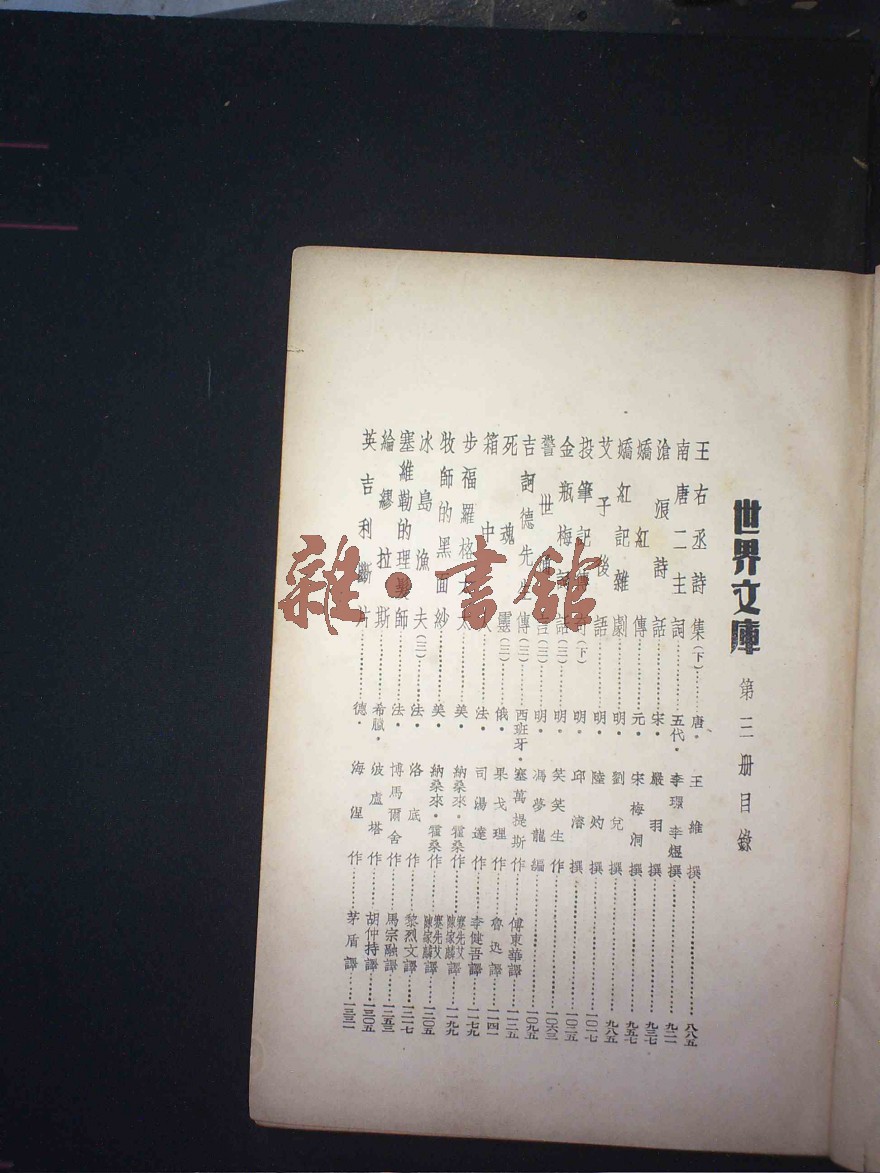 世界文庫 第三册目錄
王右丞詩集(下)……唐·王維撰……八八五
南唐二主詞……五代·李璟李煜撰……九二一
滄浪詩話……宋·嚴羽撰……九三七
嬌紅傳……元·宋梅洞撰……九五七
嬌紅記雜劇……明·劉兌撰……九八五
艾子後語……明·陸灼撰……一〇一七
投筆記傳奇(下)……明·邱濬撰……一〇二五
金瓶梅詞話(三)……明·笑笑生作……一〇六三
警世通言(三)……明·馮夢龍編……一〇九五
吉訶德先生傳(三)……西班牙·塞萬提斯作……傅東華譯……一一二五
死魂靈(三)……俄·果戈理作……魯迅譯……一一四一
箱中人……法·司湯達作……李健吾譯……一一七九
步福羅格太太……美·納桑來·霍桑作……蹇先艾陳家麟譯……一一九九
牧師的黑面紗……美·納桑來·霍桑作……蹇先艾陳家麟譯……一二〇五
冰島漁夫(三)……法·洛底作……黎烈文譯……一二一七
塞維勒的理髮師……法·博馬爾舍作……馬宗融譯……一二五三
綸繆拉斯……希臘·波盧塔作……胡仲持譯……一三〇五
英吉利斷片……德·海涅作……茅盾譯……一三三一
雜·書館